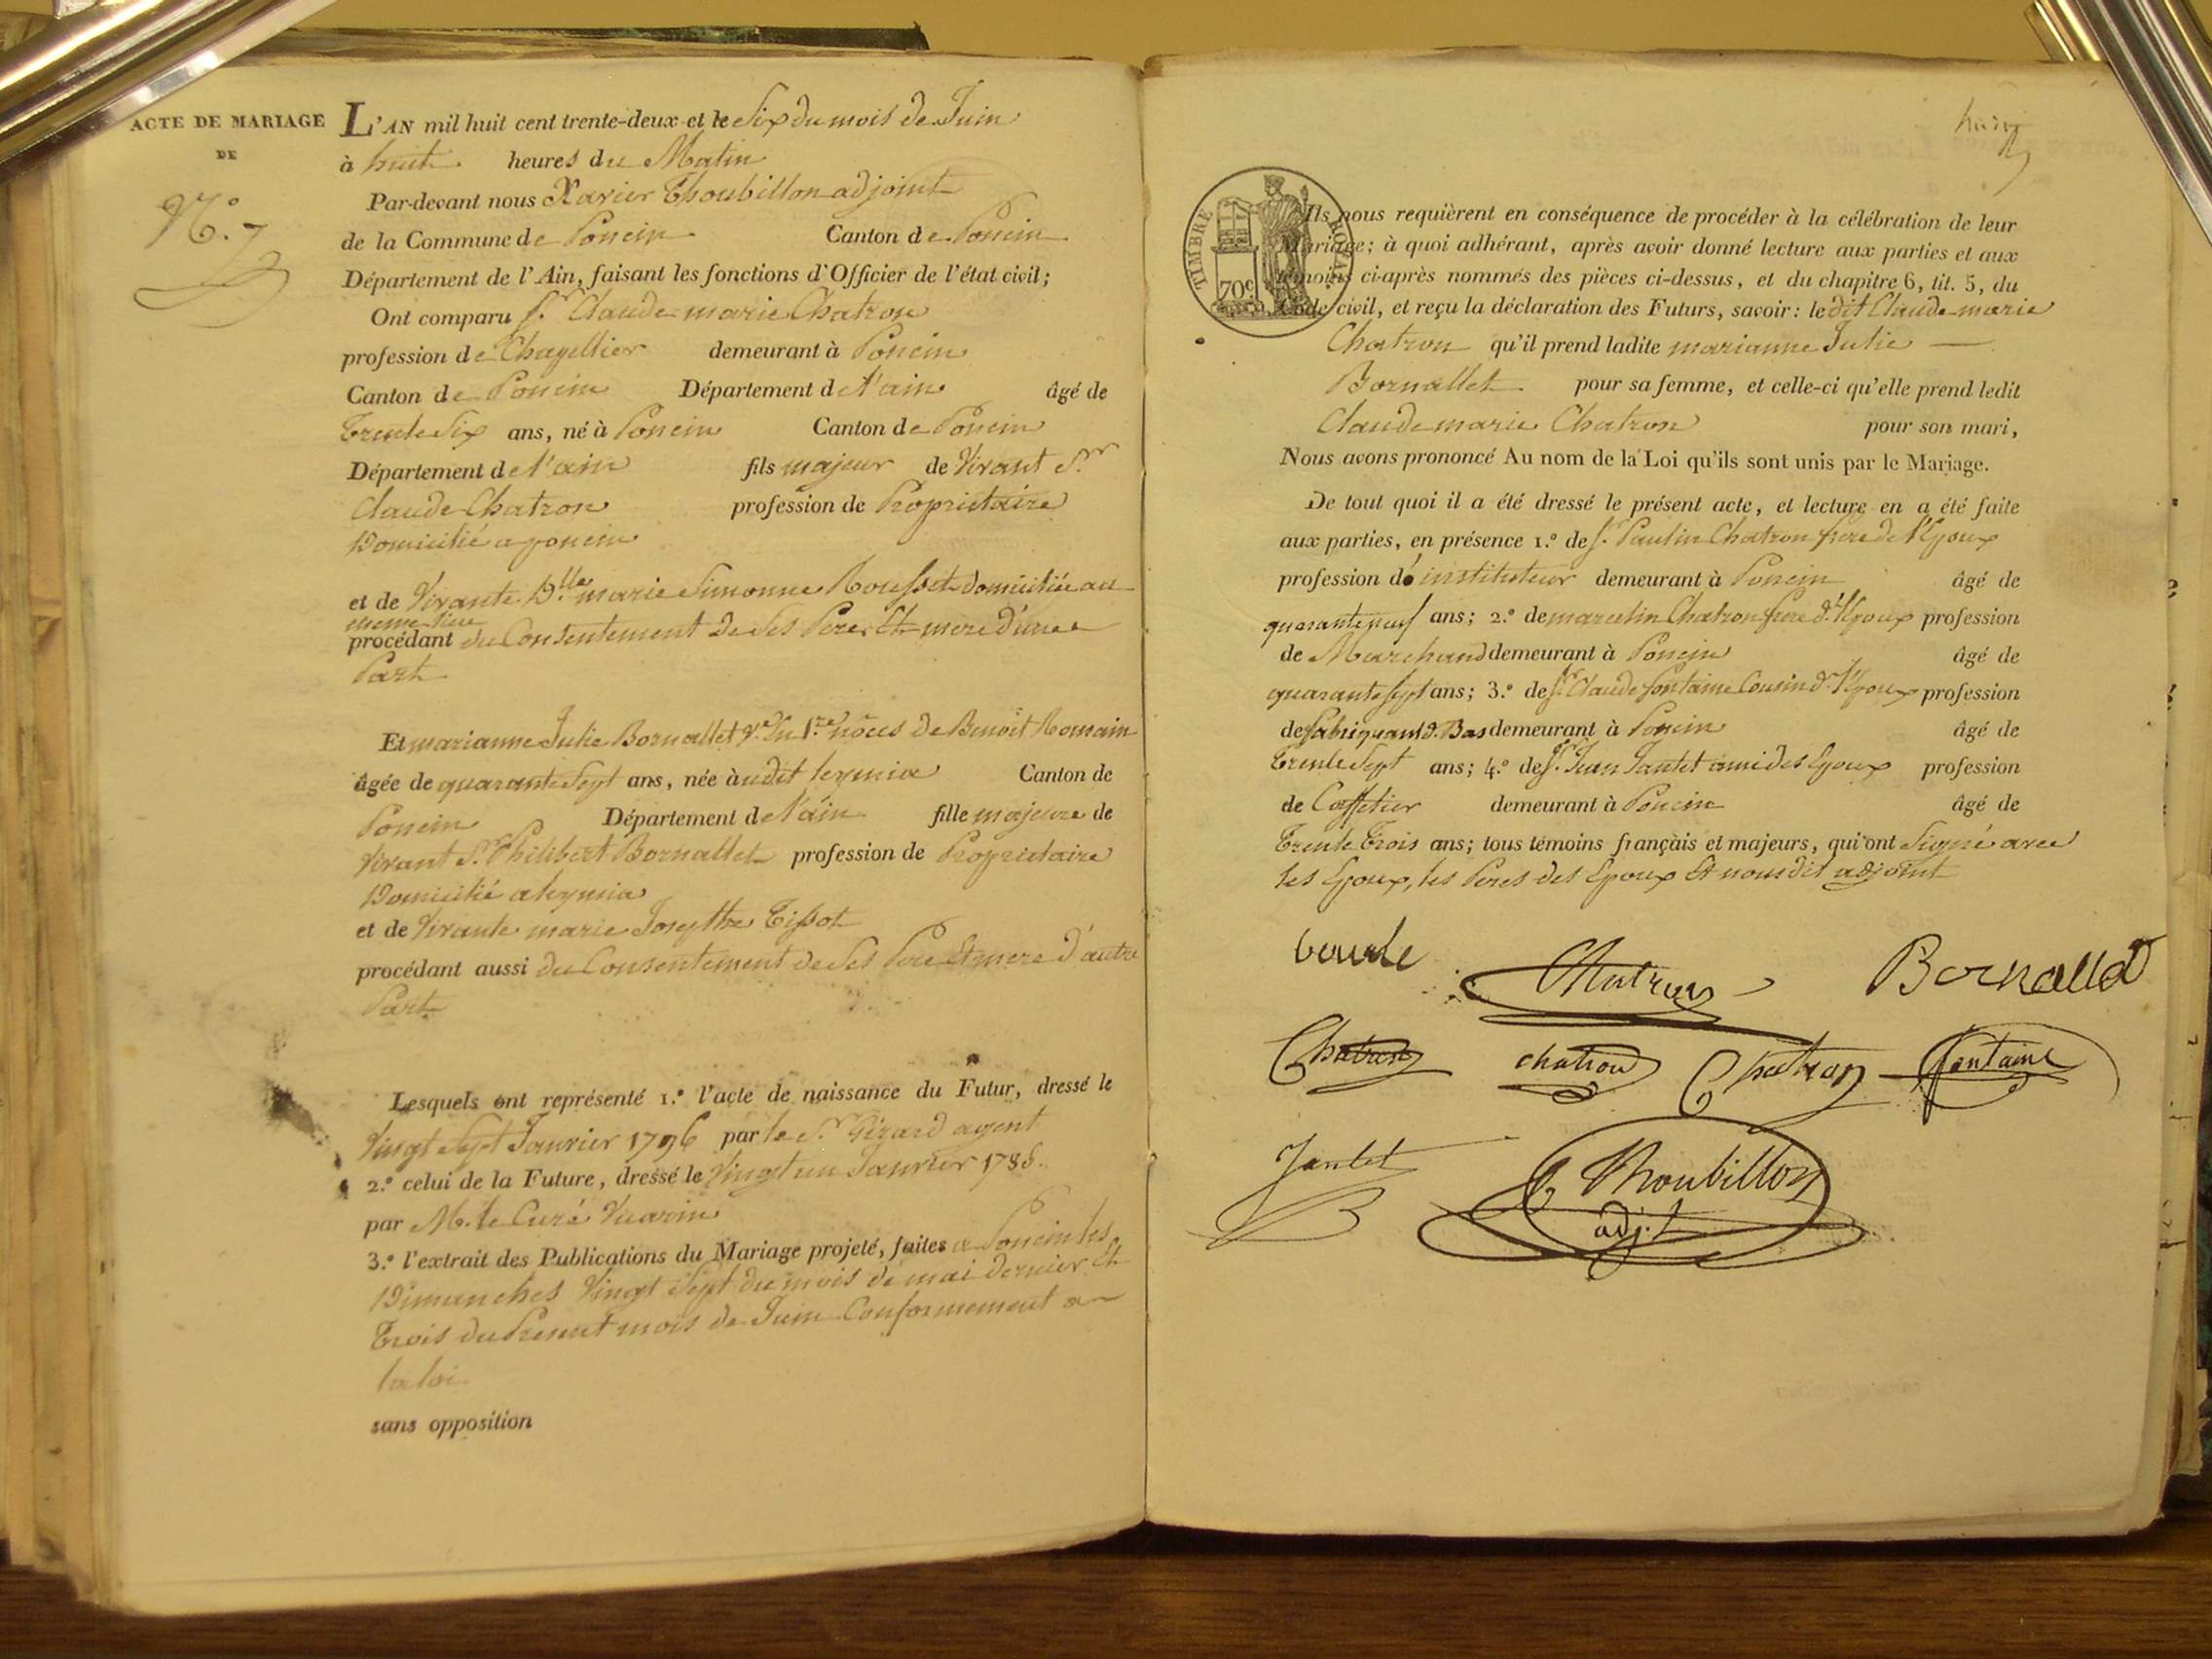 ACTE DE MARIAGE
DE
N.° 7
L'AN mil huit cent trente-deux et le Six du mois de Juin
à huit heures du Matin
Par-devant nous Xavier Thoubillon adjoint
de la Commune de Poncin Canton de Poncin
Département de l'Ain, faisant les fonctions d'Officier de l'état civil;
Ont comparu S.r Claude marie Chatron
profession de Chapellier demeurant à Poncin
Canton de Poncin Département de l'ain âgé de
Trente Six ans, né à Poncin Canton de Poncin
Département de l'ain fils majeur de Vivant S.r
Claude Chatron profession de Propriétaire
Domicilié a poncin
et de Vivante D.lle marie Simonne Rousset domiciliée au
meme lieu
procédant du Consentement de Ses Pere Et mere d'une
Part
Et marianne Julie Bornallet V.e En 1.res nôces de Benoit Romain
âgée de quarante Sept ans, née àudit leymia Canton de
Poncin Département de l'ain fille majeure de
Vivant S.r Philibert Bornallet profession de Propriétaire
Domicilié a leymia
et de Vivante marie Josephte Tissot
procédant aussi du Consentement de Ses Pere Et mere d'autre
Part
Lesquels ont représenté 1.° l'acte de naissance du Futur, dressé le
Vingt Sept Janvier 1796 par le S.r Girard agent
2.° celui de la Future, dressé le Vingt un Janvier 1785.
par M. le Curé
3.° l'extrait des Publications du Mariage projeté, faites a Poncin les
Dimanches Vingt Sept du mois de mai dernier Et
Trois du Present mois de Juin Conformement a
la loi
sans opposition
TIMBRE ROYAL
70c
Ils nous requièrent en conséquence de procéder à la célébration de leur
Mariage; à quoi adhérant, après avoir donné lecture aux parties et aux
témoins ci-après nommés des pièces ci-dessus, et du chapitre 6, tit. 5, du
Code civil, et reçu la déclaration des Futurs, savoir: le dit Claude marie
Chatron qu'il prend ladite marianne Julie —
Bornallet pour sa femme, et celle-ci qu'elle prend ledit
Claude marie Chatron pour son mari,
Nous avons prononcé Au nom de la Loi qu'ils sont unis par le Mariage.
De tout quoi il a été dressé le présent acte, et lecture en a été faite
aux parties, en présence 1.° de S.r Paulin Chatron frere de l'Epoux
profession d'instituteur demeurant à Poncin âgé de
quarante neuf ans; 2.° de marcelin Chatron frere d. l'Epoux profession
de Marchand demeurant à Poncin âgé de
quarante Sept ans; 3.° de S.r Claude fontaine Cousin d. l'Epoux profession
de fabriquant d. Bas demeurant à Poncin âgé de
Trente Sept ans; 4.° de S.r Jean Jantet ami des Epoux profession
de Caffetier demeurant à Poncin âgé de
Trente Trois ans; tous témoins français et majeurs, qui ont Signé avec
les Epoux, les Peres des Epoux Et nous dit adjoint
Chatron Bornallet
Chatron chatron Chatron fontaine
Jantet Thoubillon
adj.t